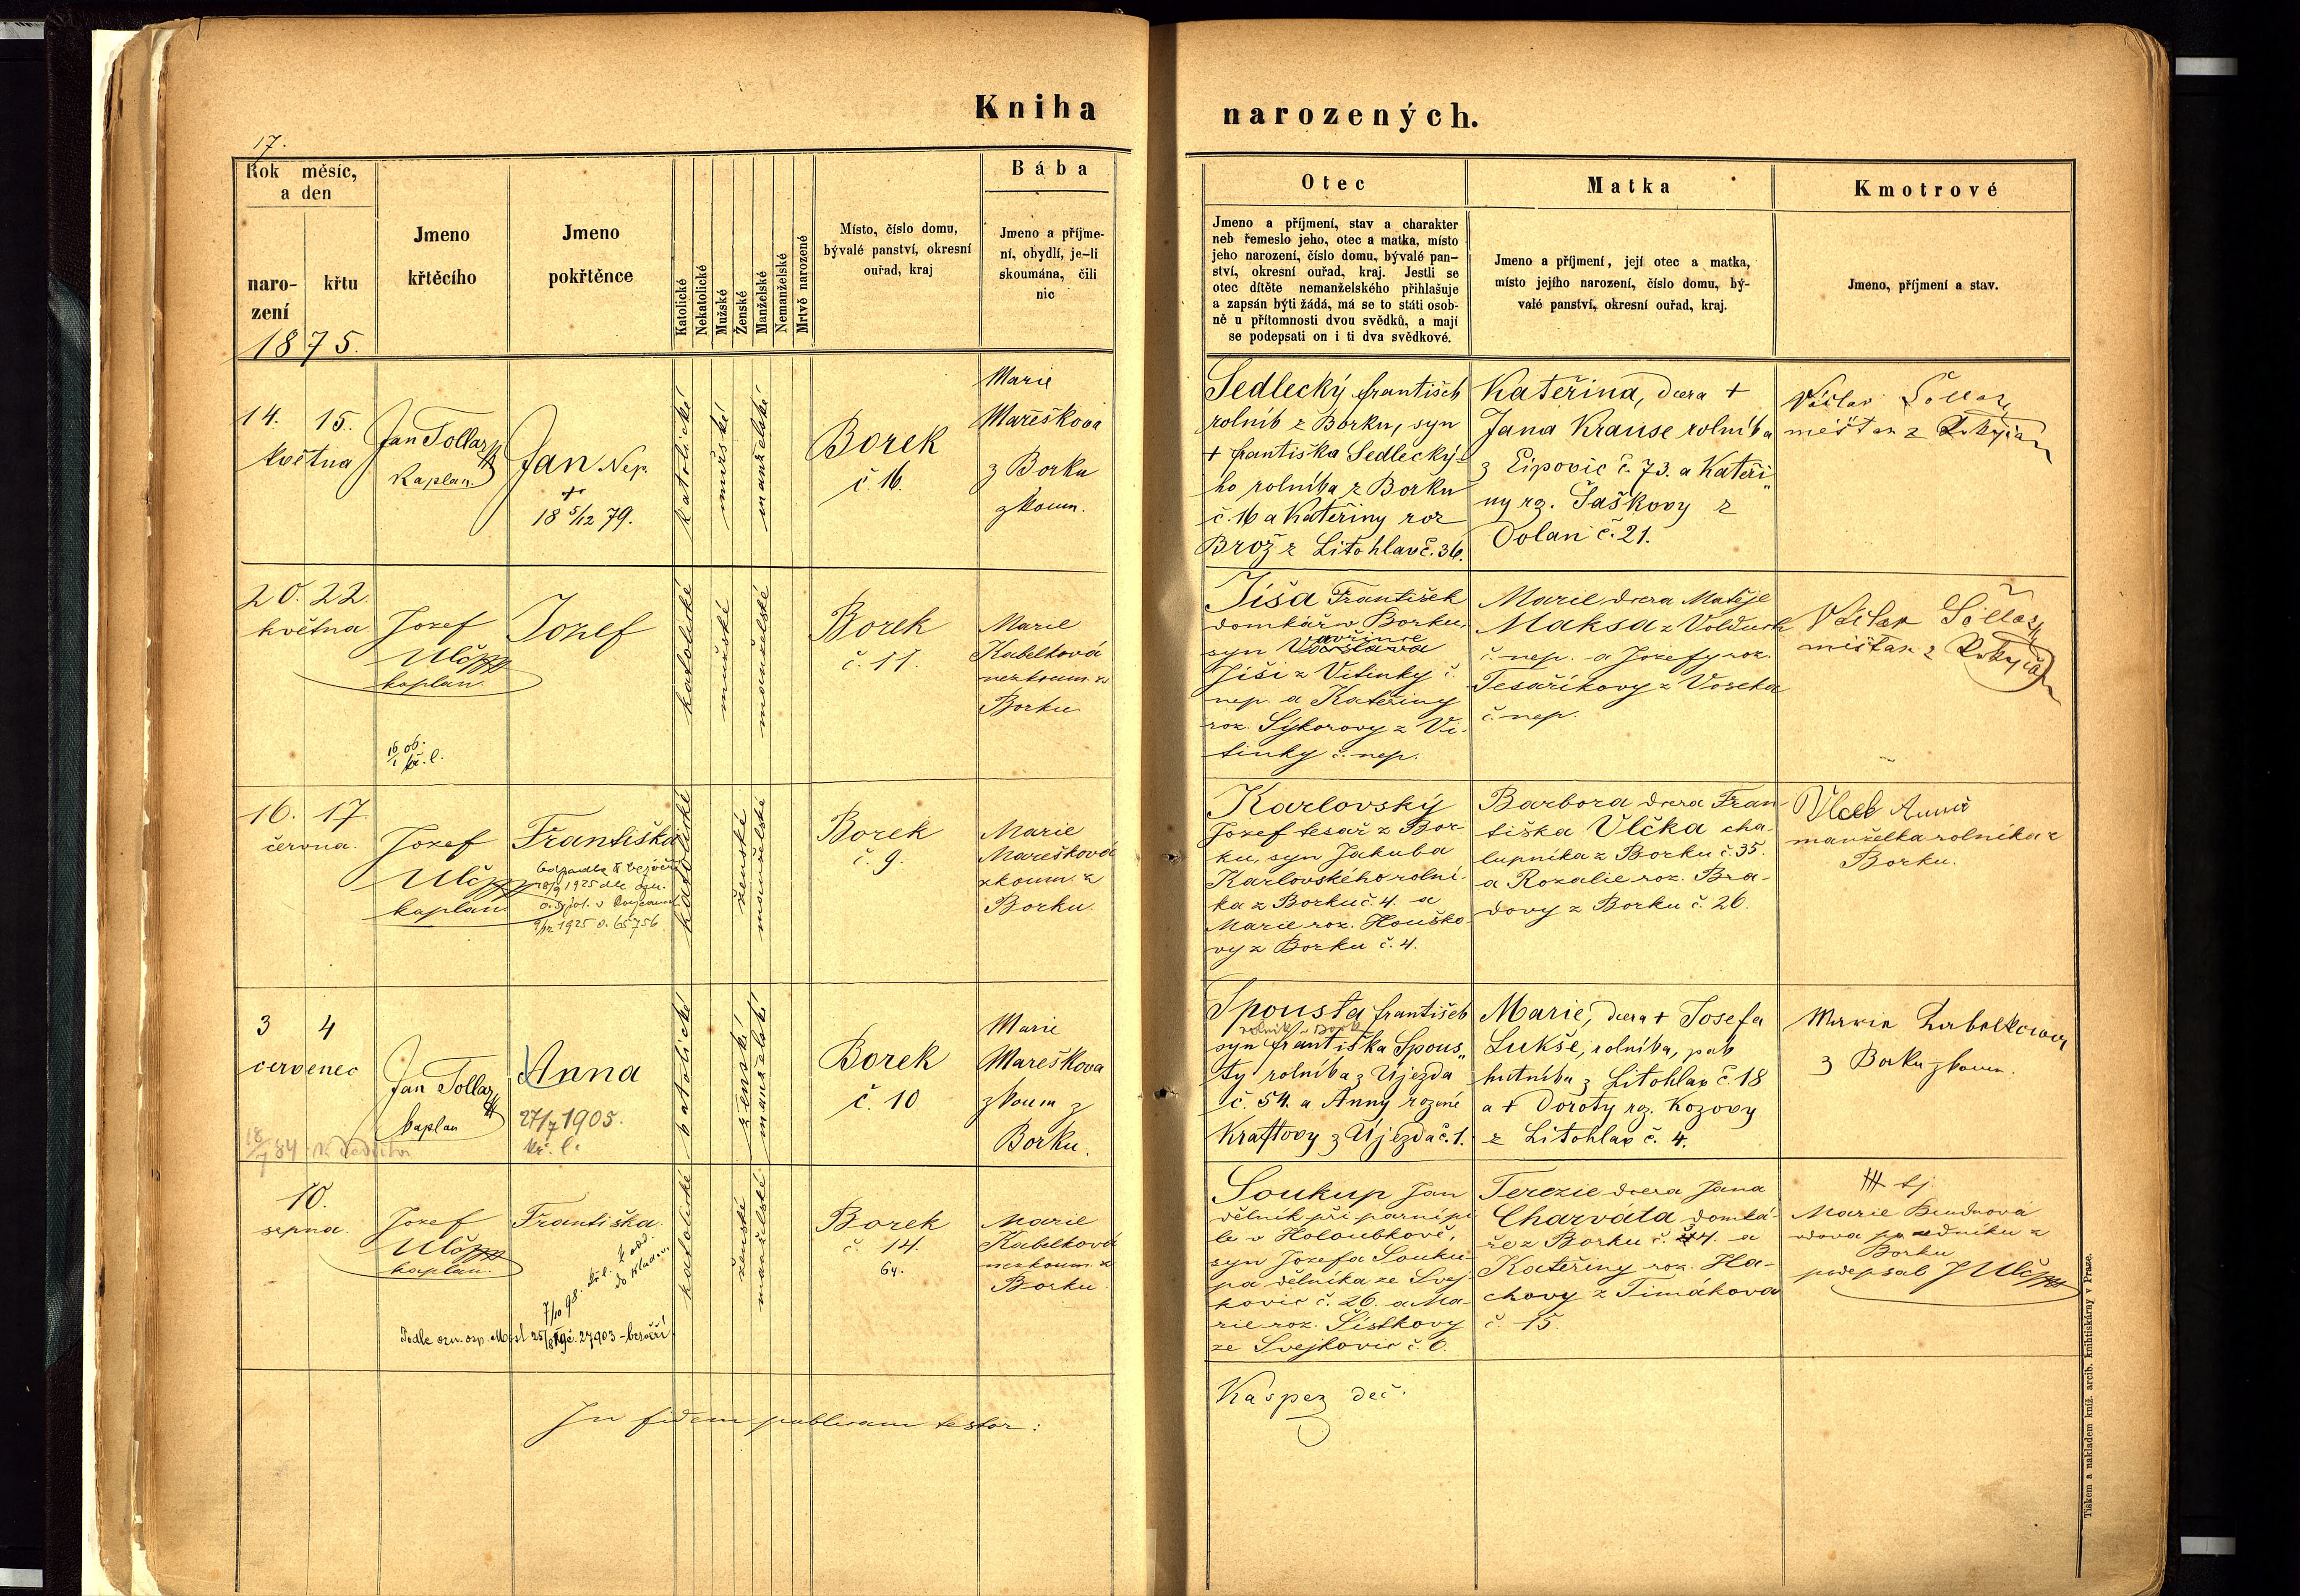 Kniha narozených.
17.
Rok měsíc, a den
narození
křtu
1875.
Jmeno křtěcího
Jmeno pokřtěnce
Katolické
Nekatolické
Mužské
Ženské
Manželské
Nemanželské
Mrtvě narozené
Místo, číslo domu,
bývalé panství, okresní
ouřad, kraj
Bába
Jmeno a příjme-
ní, obydlí, je-li
skoumána, čili
nic
Otec
Jmeno a příjmení, stav a charakter
neb řemeslo jeho, otec a matka, místo
jeho narození, číslo domu, bývalé pan-
ství, okresní ouřad, kraj. Jestli se
otec dítěte nemanželského přihlašuje
a zapsán býti žádá, má se to státi osob-
ně u přítomnosti dvou svědků, a mají
se podepsati on i ti dva svědkové.
Matka
Jmeno a příjmení, její otec a matka,
místo jejího narození, číslo domu, bý-
valé panství, okresní ouřad, kraj.
Kmotrové
Jmeno, příjmení a stav.
14. 15.
května
Jan Tollar
Kaplan.
Jan Nep.
+
18 5/12 79.
katolické
mužské
manželské
Borek
č. 16.
Marie
Mareškova
z Borku
zkoum.
Sedlecký František
rolník z Borku, syn
+ Františka Sedlecký-
ho rolníka z Borku
č. 16 a Kateřiny roz
Brož z Litohlav č. 36.
Kateřina, dcera +
Jana Krause rolníka
z Eipovic č. 73. a Kateři„
ny rz. Šaškovy z
Dolan č. 21.
Václav
měštan z
20. 22.
května
Jozef
Ulč
kaplan.
16/1 06.
kř. l.
Jozef
katolické
mužské
manželské
Borek
č. 11.
Marie
Kabelková
nezkoum. z
Borku
Jíša František
domkář v Borku,
syn Vavřince
Jíši z Vitinky č.
nep. a Kateřiny
roz. Sýkorovy z Vi-
tinky č. nep.
Marie dcera Matěje
Maksa z Volduch
č. nep. a Jozefy roz.
Tesaříkovy z Voseka
č. nep.
Václav
mištan z
16. 17.
června.
Jozef
Ulč
kaplan
Františka
1925 č. 65756
katolické
ženské
manželské
Borek
č. 9.
Marie
Marešková
zkoum. z
Borku.
Karlovský
Jozef tesař z Bor-
ku, syn Jakuba
Karlovského rolní-
ka z Borku č. 4. a
Marie roz. Houško-
vy z Borku č. 4.
Barbora dcera Fran-
tiška Vlčka cha-
lupníka z Borku č. 35.
a Rozalie roz. Bra-
dovy z Borku č. 26.
Vlček Anna
manželka rolníka z
Borku.
3 4
červenec
Jan Tollar
kaplan
18/7 84
Anna
27/7 1905.
kř. l.
katolické
ženské
manželské
Borek
č. 10
Marie
Mareškova
zkoum z
Borku.
Spousta František
rolník z Borku
syn Františka Spous„
ty rolníka z Újezda
č. 54. a Anny rozené
Kraftovy z Újezda č. 1.
Marie, dcera + Josefa
Lukše, rolníka, pak
hutníka z Litohlav č. 18
a + Doroty rz. Kozovy
z Litohlav č. 4.
Marie Kabelkova
z Borku zkoum.
10.
srpna.
Jozef
Ulč
kaplan.
Františka.
7/10 98. kř. l.
katolické
ženské
manželské
Borek
č. 14.
64.
Marie
Kabelková
nezkoum. z
Borku.
Soukup Jan
dělník při parní pi-
le v Holoubkově,
syn Jozefa Souku-
pa dělníka ze Svej-
kovic č. 26. a Ma-
rie roz. Šístkovy
ze Svejkovic č. 6.
Terezie dcera Jana
Charváta domká-
ře z Borku č. 44. a
Kateřiny roz. Ha-
chovy z Timákova
č. 15.
+++ tj.
Marie
vdova po z
Borku
podepsal J Ulč
In fidem publicam testor:
Kašpez děč.
Tiskem a nakladem kníž. arcib. knihtiskárny v Praze.